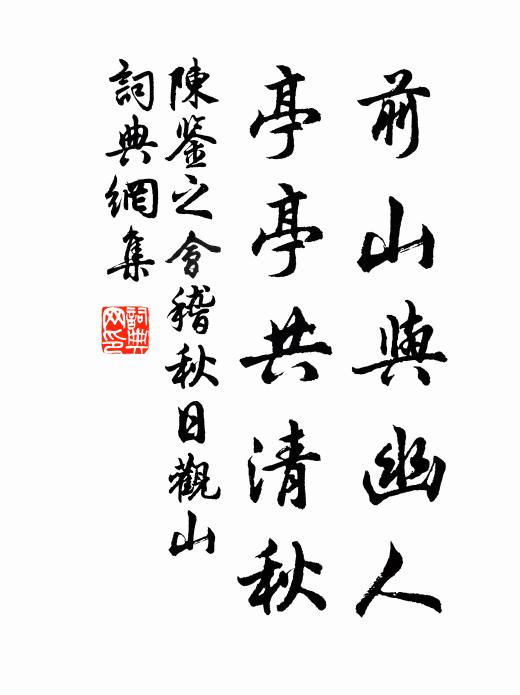 前山與幽人
亭亭共清秋
陳鑒之會稽秋日觀山
詞典網集
詞典
网印